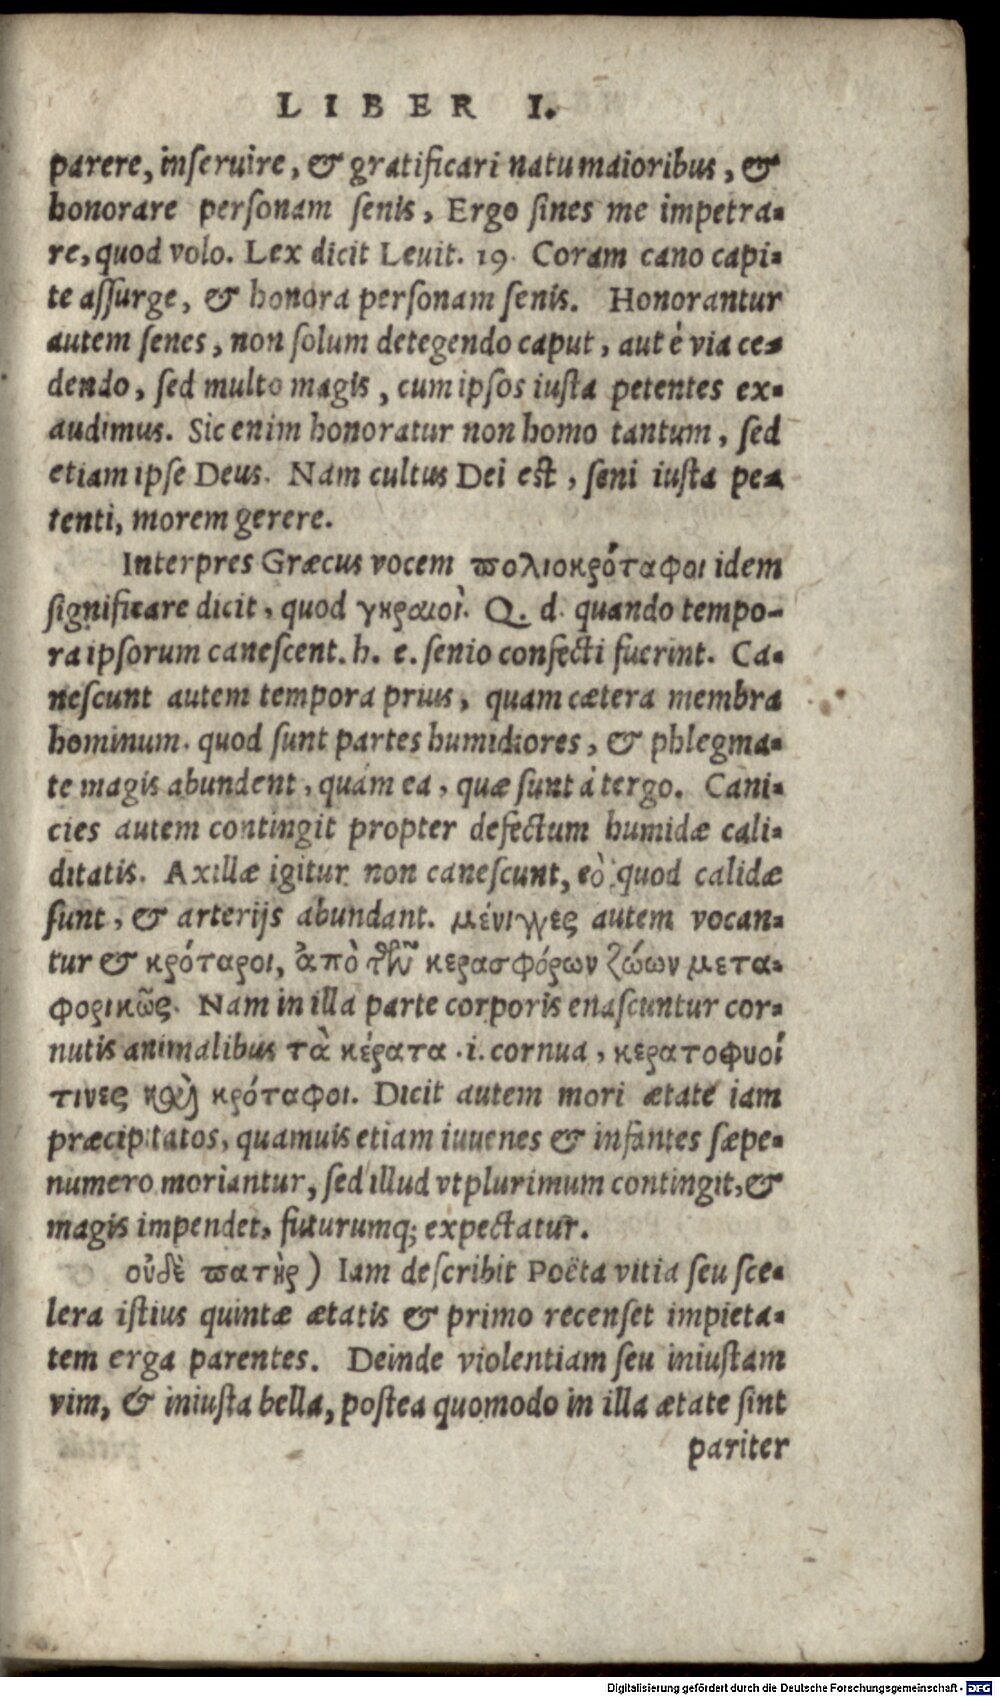 LIBER I.
parere, inseruire, & gratificari natu maioribus, &
honorare personam senis, Ergo sines me impetra-
re, quod volo. Lex dicit Leuit. 19. Coram cano capi-
te assurge, & honora personam senis. Honorantur
autem senes, non solum detegendo caput, aut è via ce-
dendo, sed multo magis, cum ipsos iusta petentes ex-
audimus. Sic enim honoratur non homo tantum, sed
etiam ipse Deus. Nam cultus Dei est, seni iusta pe-
tenti, morem gerere.
Interpres Græcus vocem πολιοκρόταφοι idem
significare dicit, quod γηραιοὶ. Q. d. quando tempo-
ra ipsorum canescent. h. e. senio confecti fuerint. Ca-
nescunt autem tempora prius, quam cætera membra
hominum. quod sunt partes humidiores, & phlegma-
te magis abundent, quàm ea, quæ sunt à tergo. Cani-
cies autem contingit propter defectum humidæ cali-
ditatis. Axillæ igitur non canescunt, eò quod calidæ
sunt, & arterijs abundant. μένιγγες autem vocan-
tur & κρόταφοι, ἀπὸ τῶν κερασφόρων ζώων μετα-
φορικῶς. Nam in illa parte corporis enascuntur cor-
nutis animalibus τὰ κέρατα .i. cornua, κερατοφυοί
τινες καὶ κρόταφοι. Dicit autem mori ætate iam
præcipitatos, quamuis etiam iuuenes & infantes sæpe-
numero moriantur, sed illud vtplurimum contingit, &
magis impendet, futurumq; expectatur.
οὐδὲ πατὴρ) Iam describit Poëta vitia seu sce-
lera istius quintæ ætatis & primo recenset impieta-
tem erga parentes. Deinde violentiam seu iniustam
vim, & iniusta bella, postea quomodo in illa ætate sint
pariter
Digitalisierung gefördert durch die Deutsche Forschungsgemeinschaft - DFG